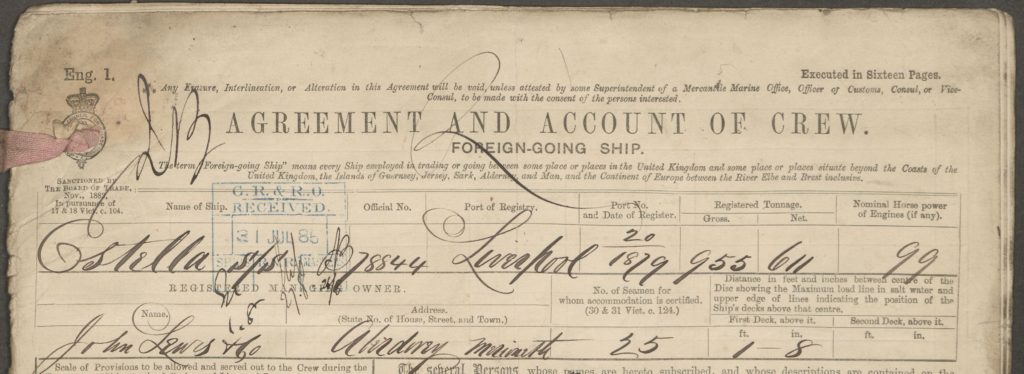 Eng. 1.
Executed in Sixteen Pages.
Any Erasure, Interlineation, or Alteration in this Agreement will be void, unless attested by some Superintendent of a Mercantile Marine Office, Officer of Customs, Consul, or Vice-
Consul, to be made with the consent of the persons interested.
AGREEMENT AND ACCOUNT OF CREW.
FOREIGN-GOING SHIP.
The term "Foreign-going Ship" means every Ship employed in trading or going between some place or places in the United Kingdom and some place or places situate beyond the Coasts of the
United Kingdom, the Islands of Guernsey, Jersey, Sark, Alderney, and Man, and the Continent of Europe between the River Elbe and Brest inclusive.
SANCTIONED BY
THE BOARD OF TRADE,
In pursuance of
17 & 18 Vict. c. 104.
G. R. & R. O.
RECEIVED.
31 JUL 85
Name of Ship.
Official No.
Port of Registry.
Port No.
and Date of Register.
Registered Tonnage.
Gross.
Net.
Nominal Horse power
of Engines (if any).
Estella s/s
78844
Liverpool
20
1879
955
611
99
REGISTERED MANAGING OWNER.
No. of Seamen for
whom accommodation is certified.
(30 & 31 Vict. c. 124.)
Distance in feet and inches between centre of the
Disc showing the Maximum load line in salt water and
upper edge of lines indicating the position of the
Ship's decks above that centre.
Name.
Address.
(State No. of House, Street, and Town.)
First Deck, above it.
Second Deck, above it.
ft. in.
ft. in.
John Lewis & Co
Aberdovey Merioneth
25
1-8
Scale of Provisions to be allowed and served out to the Crew during the
The several Persons whose names are hereto subscribed, and whose descriptions are contained on the